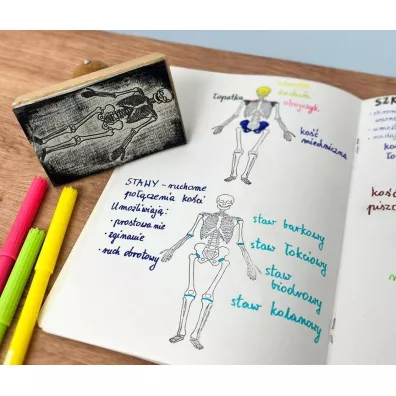 żuchwa
łopatka
obojczyk
kość
miedniczna
STAWY - ruchome
połączenia kości
Umożliwiają:
- prostowanie
- zginanie
- ruch obrotowy
staw barkowy
staw łokciowy
staw
biodrowy
staw kolanowy
kość